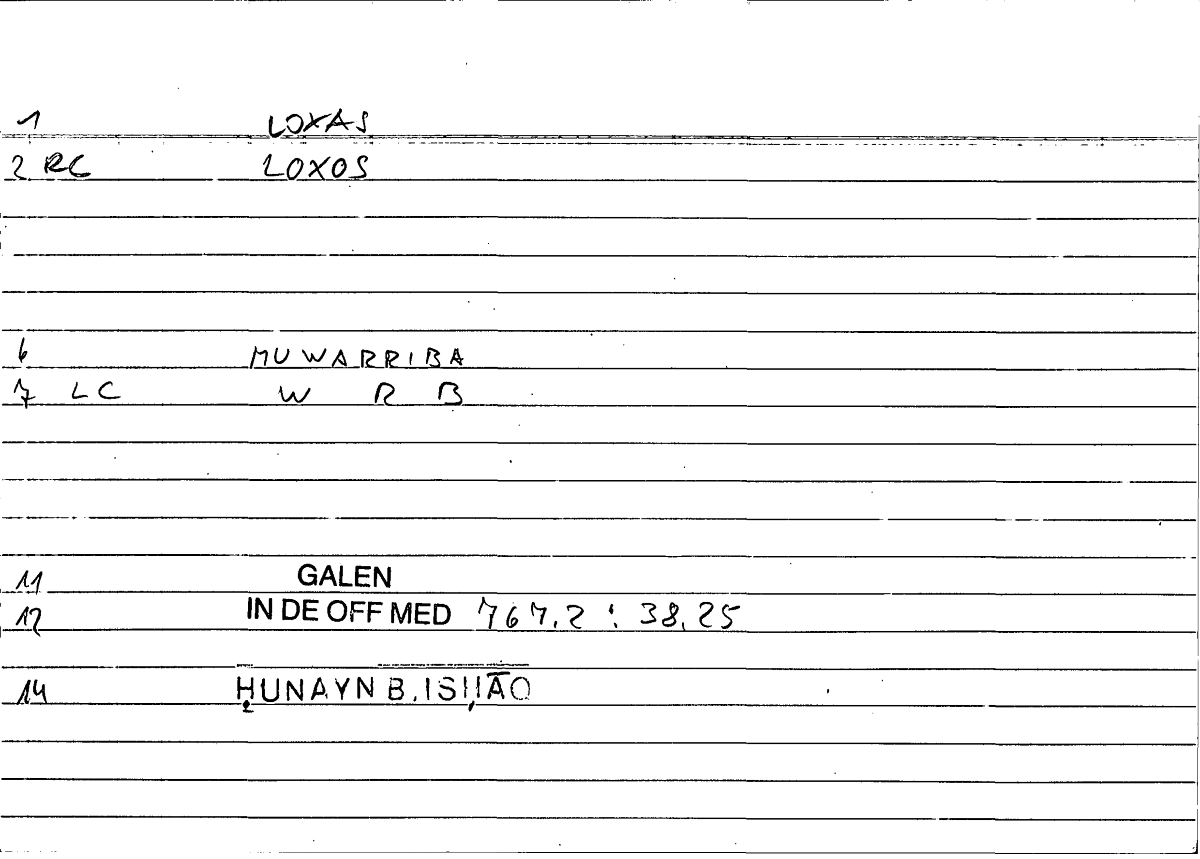 1 LOXAS
2 RC LOXOS
6 MUWARRIBA
7 LC W R B
11 GALEN
12 IN DE OFF MED 767.2 : 38.25
14 ḤUNAYN B. ISḤĀQ